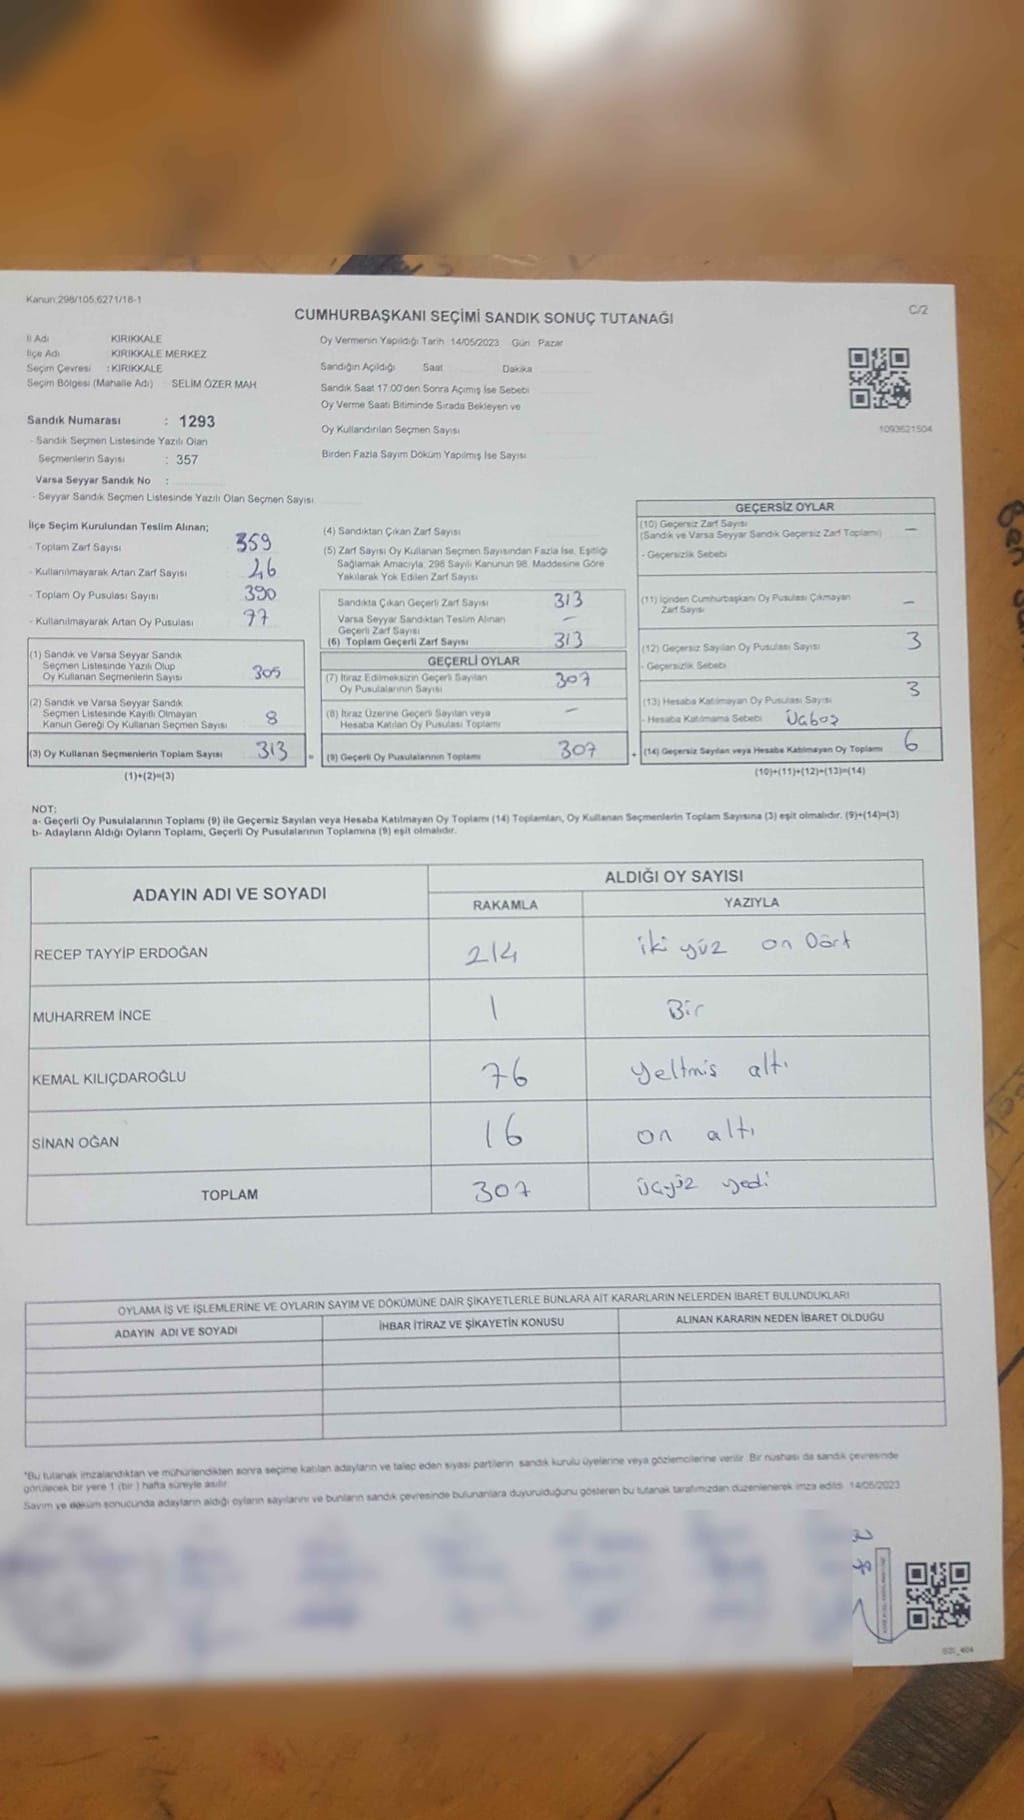 Kanun:298/105,6271/18-1
C/2
CUMHURBAŞKANI SEÇİMİ SANDIK SONUÇ TUTANAĞI
İl Adı KIRIKKALE
İlçe Adı KIRIKKALE MERKEZ
Seçim Çevresi : KIRIKKALE
Seçim Bölgesi (Mahalle Adı) SELİM ÖZER MAH
Oy Vermenin Yapıldığı Tarih 14/05/2023 Gün : Pazar
Sandığın Açıldığı Saat Dakika
Sandık Saat 17:00'den Sonra Açımış İse Sebebi
Oy Verme Saati Bitiminde Sırada Bekleyen ve
Oy Kullandırılan Seçmen Sayısı
Birden Fazla Sayım Döküm Yapılmış İse Sayısı
1093521504
Sandık Numarası : 1293
- Sandık Seçmen Listesinde Yazılı Olan
Seçmenlerin Sayısı : 357
Varsa Seyyar Sandık No :
- Seyyar Sandık Seçmen Listesinde Yazılı Olan Seçmen Sayısı
İlçe Seçim Kurulundan Teslim Alınan;
- Toplam Zarf Sayısı 359
- Kullanılmayarak Artan Zarf Sayısı 46
- Toplam Oy Pusulası Sayısı 390
- Kullanılmayarak Artan Oy Pusulası 77
(1) Sandık ve Varsa Seyyar Sandık
Seçmen Listesinde Yazılı Olup
Oy Kullanan Seçmenlerin Sayısı 305
(2) Sandık ve Varsa Seyyar Sandık
Seçmen Listesinde Kayıtlı Olmayan
Kanun Gereği Oy Kullanan Seçmen Sayısı 8
(3) Oy Kullanan Seçmenlerin Toplam Sayısı 313 =
(1)+(2)=(3)
(4) Sandıktan Çıkan Zarf Sayısı
(5) Zarf Sayısı Oy Kullanan Seçmen Sayısından Fazla İse, Eşitliği
Sağlamak Amacıyla, 298 Sayılı Kanunun 98. Maddesine Göre
Yakılarak Yok Edilen Zarf Sayısı
Sandıkta Çıkan Geçerli Zarf Sayısı 313
Varsa Seyyar Sandıktan Teslim Alınan
Geçerli Zarf Sayısı —
(6) Toplam Geçerli Zarf Sayısı 313
GEÇERLİ OYLAR
(7) İtiraz Edilmeksizin Geçerli Sayılan
Oy Pusulalarının Sayısı 307
(8) İtiraz Üzerine Geçerli Sayılan veya
Hesaba Katılan Oy Pusulası Toplamı —
(9) Geçerli Oy Pusulalarının Toplamı 307 +
GEÇERSİZ OYLAR
(10) Geçersiz Zarf Sayısı —
(Sandık ve Varsa Seyyar Sandık Geçersiz Zarf Toplamı)
- Geçersizlik Sebebi
(11) İçinden Cumhurbaşkanı Oy Pusulası Çıkmayan
Zarf Sayısı —
(12) Geçersiz Sayılan Oy Pusulası Sayısı 3
- Geçersizlik Sebebi
(13) Hesaba Katılmayan Oy Pusulası Sayısı 3
- Hesaba Katılmama Sebebi
(14) Geçersiz Sayılan veya Hesaba Katılmayan Oy Toplamı 6
(10)+(11)+(12)+(13)=(14)
NOT:
a- Geçerli Oy Pusulalarının Toplamı (9) ile Geçersiz Sayılan veya Hesaba Katılmayan Oy Toplamı (14) Toplamları, Oy Kullanan Seçmenlerin Toplam Sayısına (3) eşit olmalıdır. (9)+(14)=(3)
b- Adayların Aldığı Oyların Toplamı, Geçerli Oy Pusulalarının Toplamına (9) eşit olmalıdır.
ADAYIN ADI VE SOYADI ALDIĞI OY SAYISI
RAKAMLA YAZIYLA
RECEP TAYYİP ERDOĞAN 214 iki yüz on Dört
MUHARREM İNCE 1 Bir
KEMAL KILIÇDAROĞLU 76 yeltmis altı
SİNAN OĞAN 16 on altı
TOPLAM 307 üçyüz yedi
OYLAMA İŞ VE İŞLEMLERİNE VE OYLARIN SAYIM VE DÖKÜMÜNE DAİR ŞİKAYETLERLE BUNLARA AİT KARARLARIN NELERDEN İBARET BULUNDUKLARI
ADAYIN ADI VE SOYADI İHBAR İTİRAZ VE ŞİKAYETİN KONUSU ALINAN KARARIN NEDEN İBARET OLDUĞU
*Bu tutanak imzalandıktan ve mühürlendikten sonra seçime katılan adayların ve talep eden siyasi partilerin sandık kurulu üyelerine veya gözlemcilerine verilir. Bir nüshası da sandık çevresinde
görülecek bir yere 1 (bir ) hafta süreyle asılır.
Sayım ve döküm sonucunda adayların aldığı oyların sayılarını ve bunların sandık çevresinde bulunanlara duyurulduğunu gösteren bu tutanak tarafımızdan düzenlenerek imza edildi. 14/05/2023